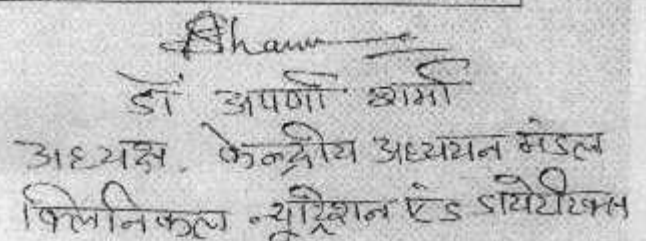 डॉ अपर्णा शर्मा
अध्यक्ष. केन्द्रीय अध्ययन मंडल
क्लिनिकल न्यूट्रिशन एंड डायेटीक्स